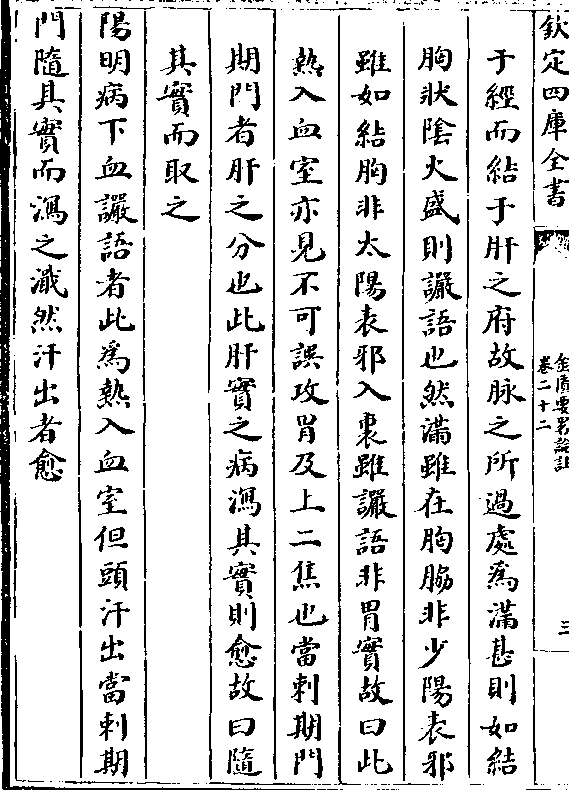 欽定四庫全書
金匱要畧論註
卷二十二
三
于經而結于肝之府故脉之所過處為滿甚則如結
胸狀陰火盛則讝語也然滿雖在胸脇非少陽表邪
雖如結胸非太陽表邪入裏雖讝語非胃實故曰此
熱入血室亦見不可誤攻胃及上二焦也當刺期門
期門者肝之分也此肝實之病瀉其實則愈故曰隨
其實而取之
陽明病下血讝語者此為熱入血室但頭汗出當刺期
門隨其實而瀉之濈然汗出者愈